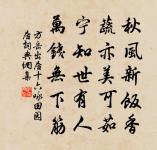 秋風新飯香
蔬亦美可茹
寧知世有人
萬錢無下筯
方岳出居十六咏田園
唐詞典備集